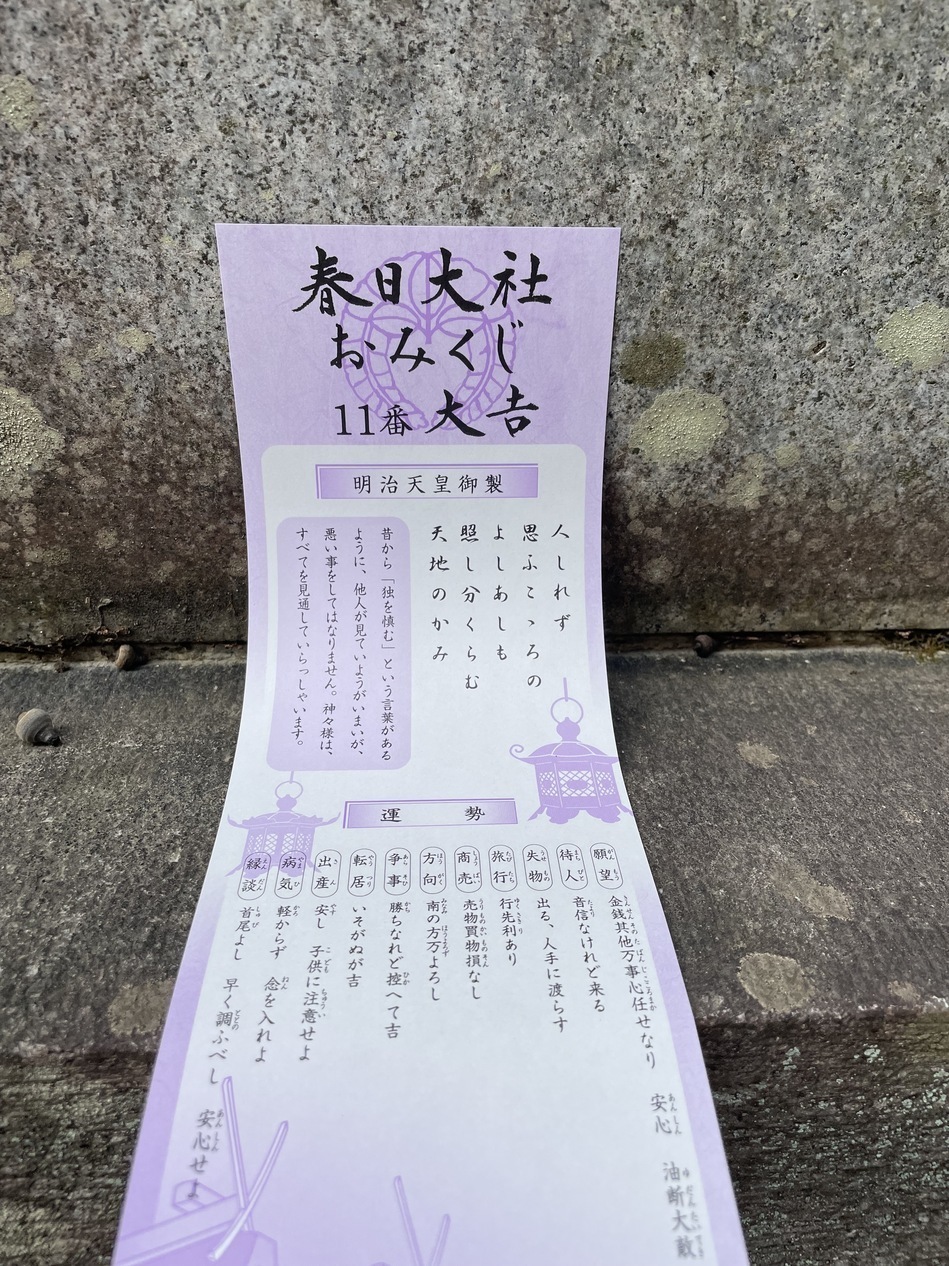 春日大社
おみくじ
11番 大吉
明治天皇御製
人しれず
思ふこゝろの
よしあしも
照し分くらむ
天地のかみ
昔から「独を慎む」という言葉がある
ように、他人が見ていようがいまいが、
悪い事をしてはなりません。神々様は、
すべてを見通していらっしゃいます。
運勢
願望 金銭其他万事心任せなり 安心 油断大敵
待人 音信なけれど来る
失物 出る、人手に渡らす
旅行 行先利あり
商売 売物買物損なし
方向 南の方万よろし
争事 勝ちなれど控へて吉
転居 いそがぬが吉
出産 安し 子供に注意せよ
病気 軽からず 念を入れよ
縁談 首尾よし 早く調ふべし 安心せよ